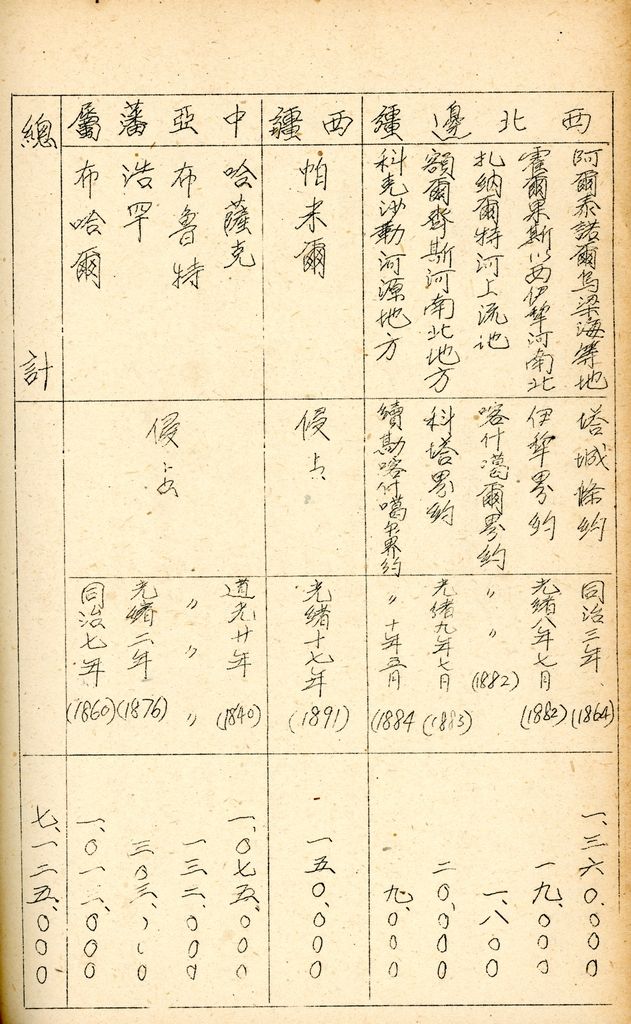 西北邊疆
阿爾泰諾爾烏梁海等地
塔城條約
同治三年
(1864)
一、三六〇、〇〇〇
霍爾果斯以西伊犂河南北
伊犂界約
光緒八年七月
(1882)
一九、〇〇〇
扎納爾特河上流地
喀什噶爾界約
〃 〃
(1882)
一、八〇〇
額爾齊斯河南北地方
科塔界約
光緒九年七月
(1883)
二〇、〇〇〇
科克沙勒河源地方
續勘喀什噶尔界約
〃 十年五月
(1884
九、〇〇〇
西疆
帕米爾
侵占
光緒十七年
(1891)
一五〇、〇〇〇
中亞藩屬
哈薩克
侵占
道光廿年
(1840)
一、〇七五、〇〇〇
布魯特
〃 〃 〃
一三二、〇〇〇
浩罕
光緒二年
(1876)
三〇三、〇〇〇
布哈爾
同治七年
(1860)
一、〇一二、〇〇〇
總計
七、一二五、〇〇〇